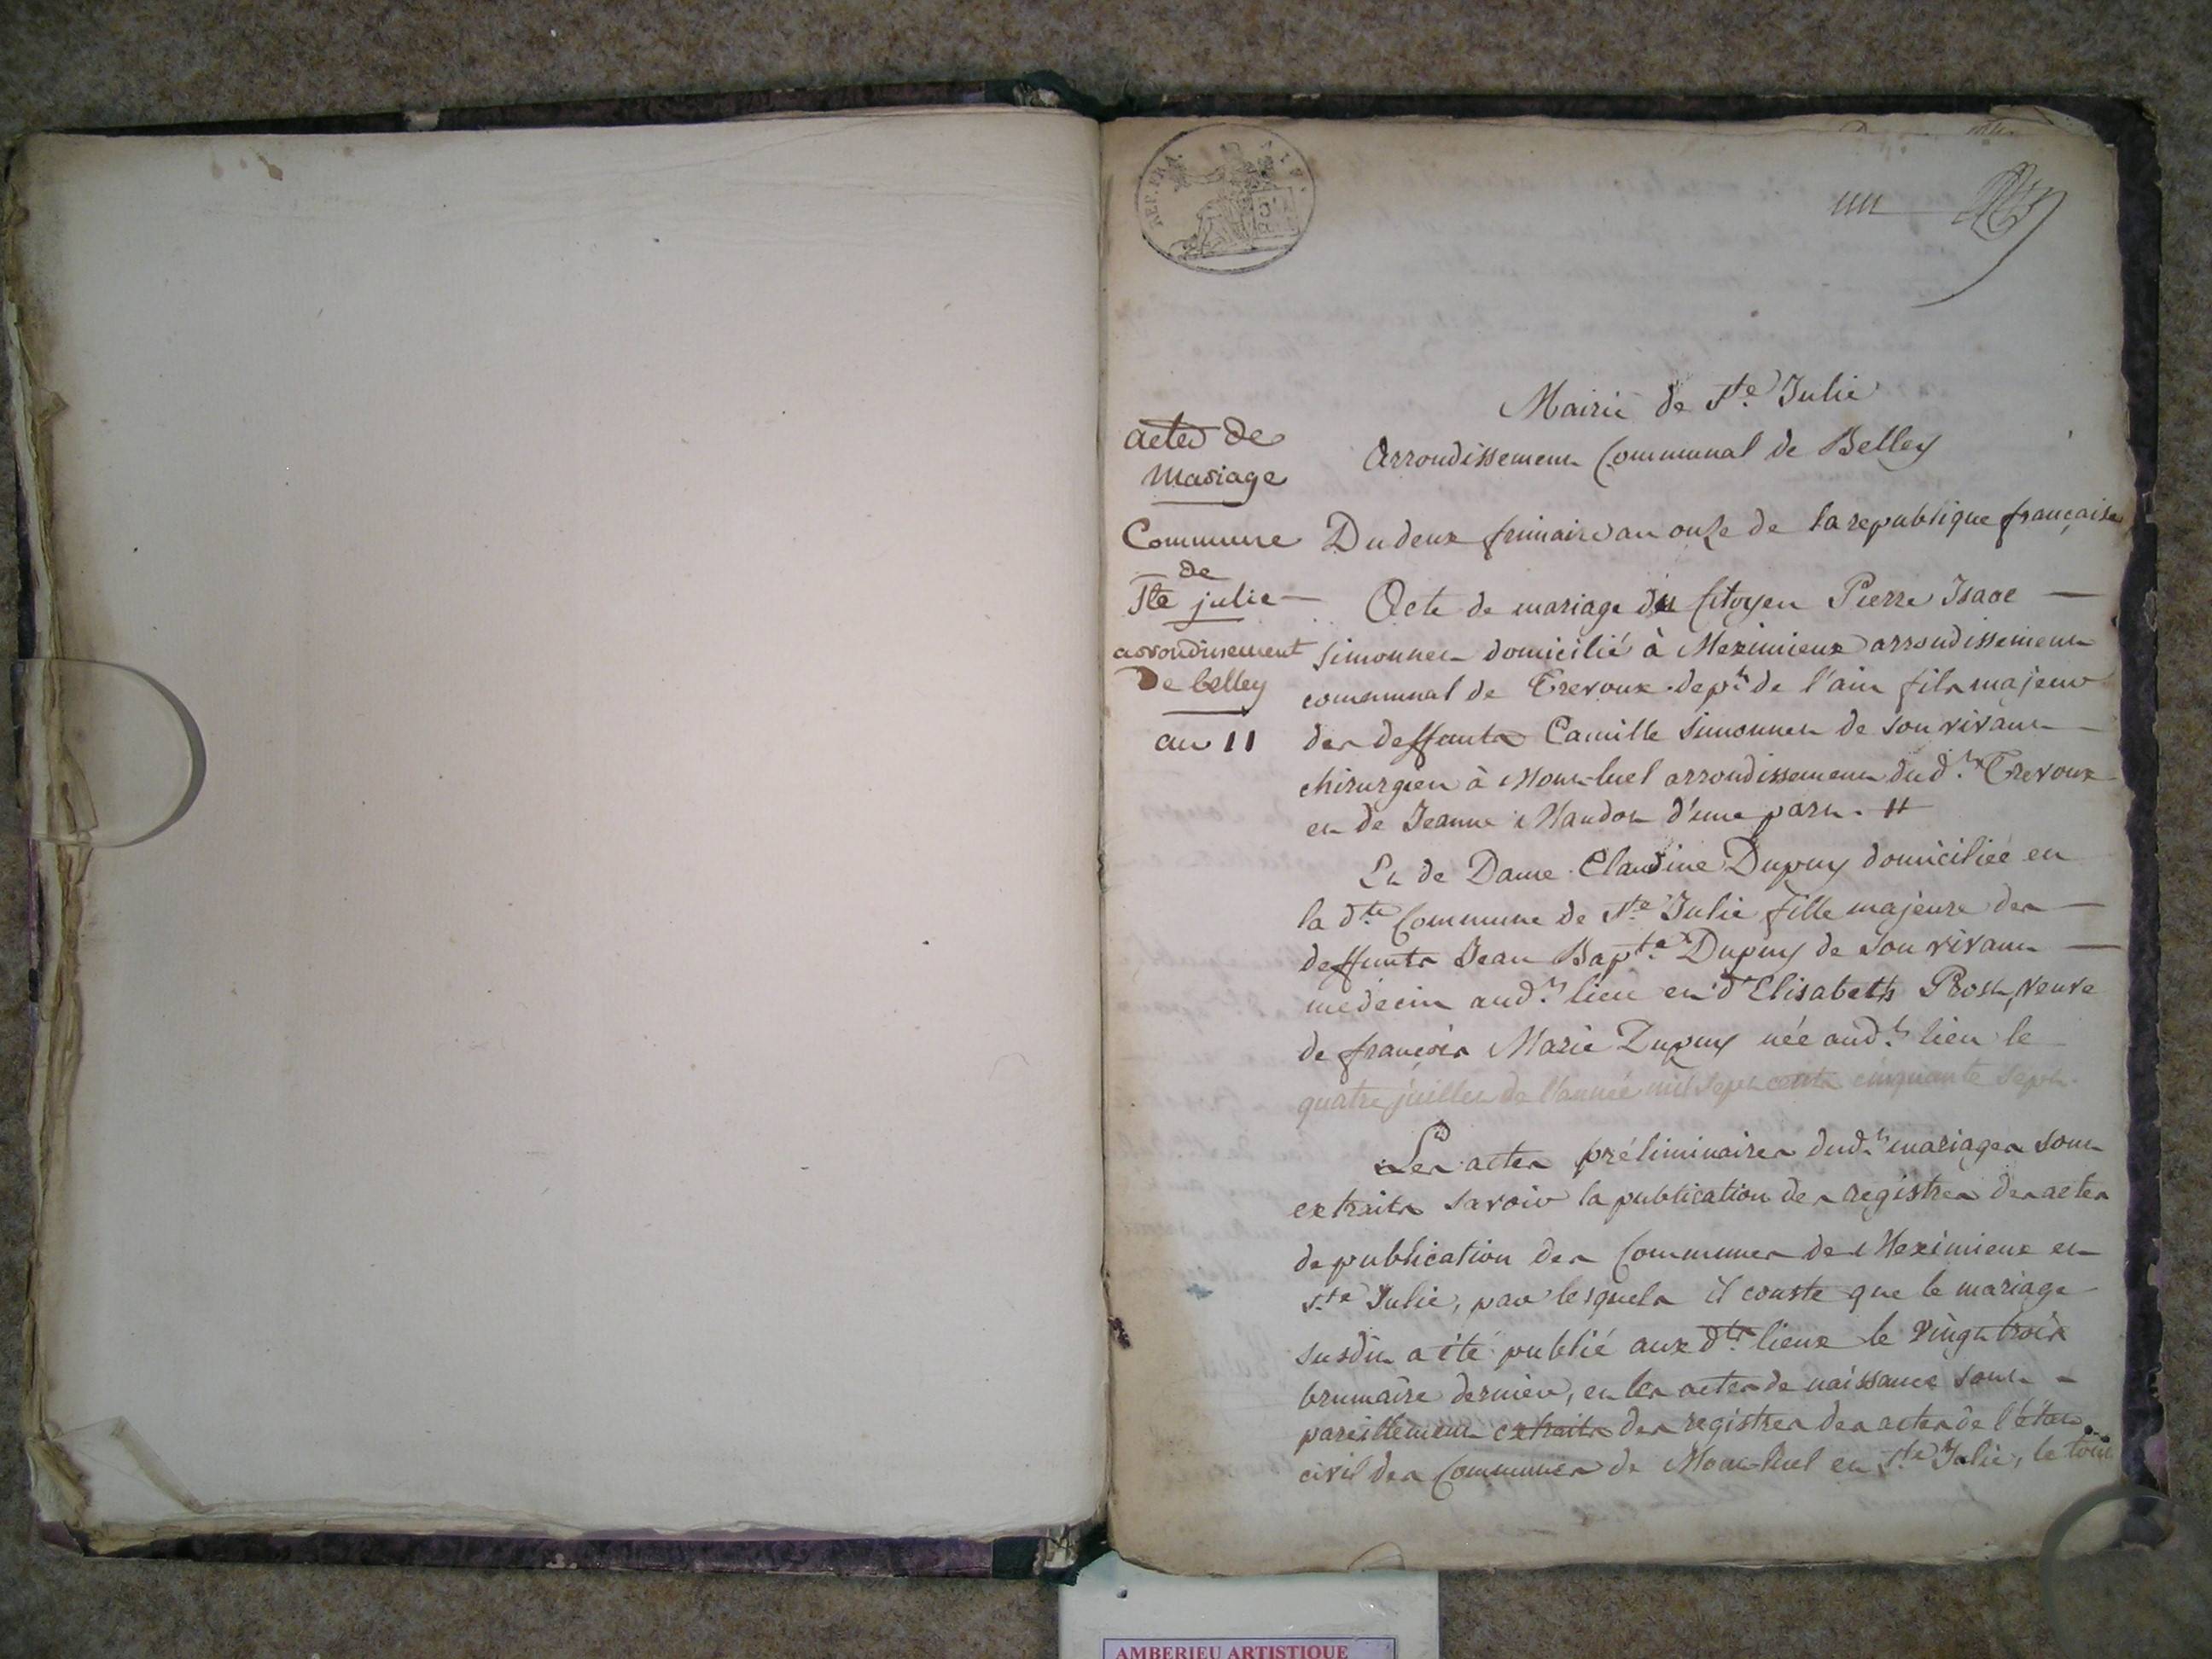 REP. FRA.
un
Mairie de Ste Julie
Arrondissement Communal de Belley
actes de
Mariage
Commune
de
Ste julie
arrondisement
de belley
an 11
Du deux frimaire an onze de la republique française
Acte de mariage du Citoyen Pierre Isaac
Simonnet domicilié à Meximieux arrondissement
communal de Trevoux dept de l'ain fils majeur
des deffunts Camille Simonnet de son vivant
chirurgien à Mont-luel arrondissement dud.t Trevoux
et de Jeanne Mandot d'une part.
Et de Dame Claudine Dupuy domiciliée en
la dte Commune de Ste Julie fille majeure des
deffunts Jean Bapte Dupuy de son vivant
medecin aud.t lieu et d'Elisabeth Prost, veuve
de françois Marie Dupuy née aud.t lieu le
quatre juillet de l'année mil sept cents cinquante sept.
Les actes préliminaires dud.t mariages sont
extraits savoir la publication des registres des actes
de publication des Communes de Meximieux et
Ste Julie, par lesquels il conste que le mariage
susdit a été publié aux dts lieux le vingt trois
brumaire dernier, et les actes de naissance sont
pareillement extraits des registres des actes de l'état
civil des Communes de Mont-luel et Ste Julie, le tout
AMBERIEU ARTISTIQUE